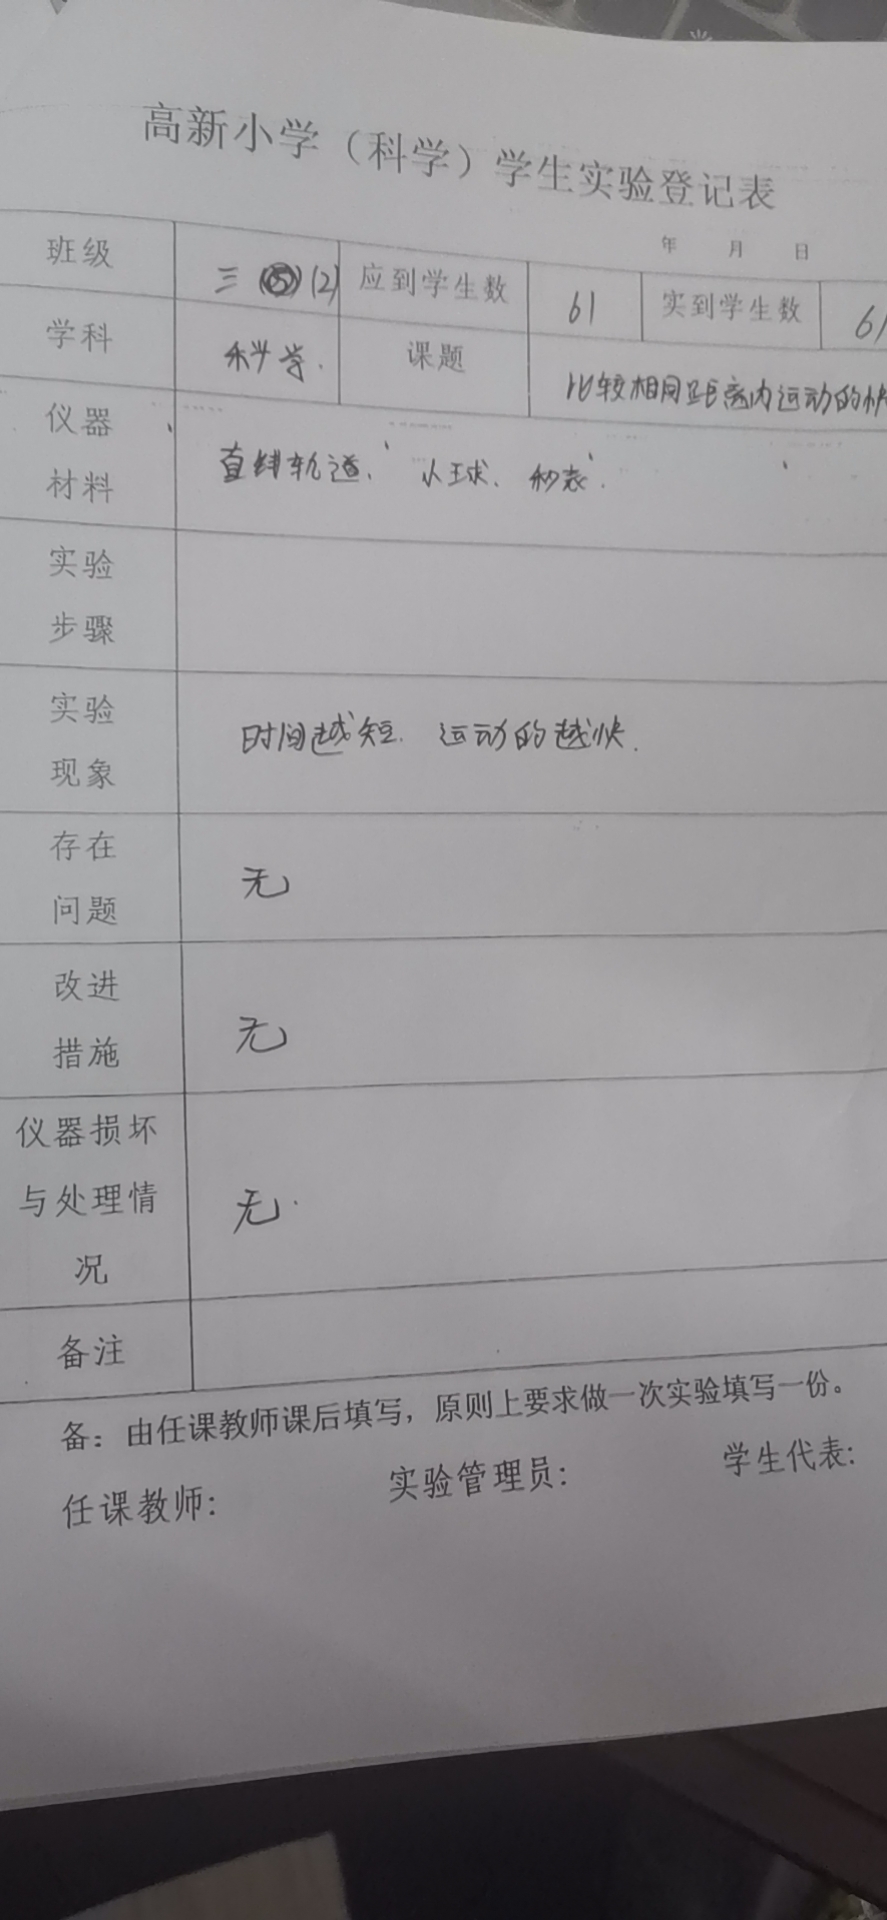 高新小学（科学）学生实验登记表
年 月 日
班级 三 (2) 应到学生数 61 实到学生数 61
学科 科学. 课题 比较相同距离内运动的快
仪器
材料
直线轨道、小球、秒表.
实验
步骤
实验
现象
时间越短. 运动的越快.
存在
问题
无
改进
措施
无
仪器损坏
与处理情
况
无.
备注
备：由任课教师课后填写，原则上要求做一次实验填写一份。
任课教师: 实验管理员: 学生代表: